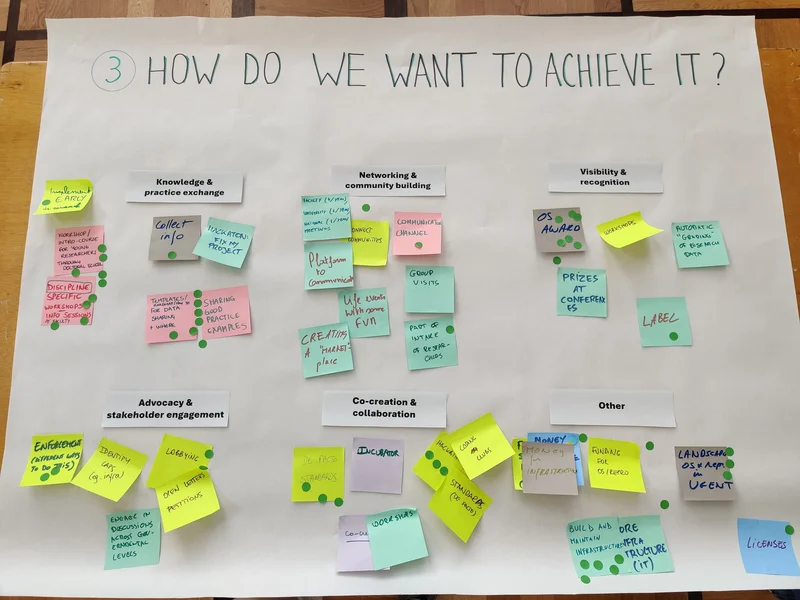 3 HOW DO WE WANT TO ACHIEVE IT?
Implement
EARLY
Knowledge &
practice exchange
WORKSHOP/
INTRO-COURSE
FOR YOUNG
RESEARCHERS
THROUGH
DOCTORAL SCHOOL
DISCIPLINE
SPECIFIC
WORKSHOPS
INFO SESSIONS
Collect
info
HACKATON:
FIX MY
PROJECT
TEMPLATES/
FOR DATA
SHARING
+ WHERE
SHARING
GOOD
PRACTICE
EXAMPLES
Networking &
community building
FACULTY (4/YEAR)
MEETINGS
CONNECT
COMMUNITIES
COMMUNICATION
CHANNEL
Platform
to
Communicate
GROUP
VISITS
Life events
with some
FUN
CREATING
A "MARKET-
place
PART OF
INTAKE
OF RESEAR-
CHERS
Visibility &
recognition
OS
AWARD
WORKSHOPS
AUTOMATIC
"GENDING"
OF RESEARCH
DATA
PRIZES AT
CONFEREN
ES
LABEL
Advocacy &
stakeholder engagement
ENFORCEMENT
(DIFFERENT WAYS
TO DO THIS)
IDENTIFY
LOBBYING
OPEN LETTERS
PETITIONS
ENGAGE IN
DISCUSSIONS
ACROSS GOV-
ERNMENTAL
LEVELS
Co-creation &
collaboration
INCUBATOR
WORKSHOPS
STANDARDS
(DE FACTO)
Other
MONEY
MONEY
for
INFRASTRUCTURE
FUNDING
FOR
OS/REPRO
LANDSCAPE
OS & repro
in
UGENT
BUILD AND
MAINTAIN
INFRASTRUCTURE
(IT)
LICENSES